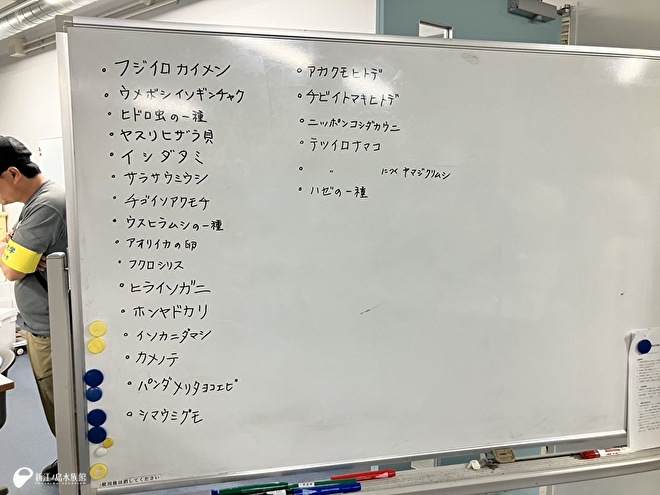 。フジイロカイメン
。ウメボシイソギンチャク
。ヒドロ虫の一種
。ヤスリヒザラ貝
。イシダタミ
。サラサウミウシ
。チゴイソアワモチ
。ウスヒラムシの一種
。アオリイカの卵
。フクロシリス
。ヒライソガニ
。ホンヤドカリ
。イソカニダマシ
。カメノテ
。パンダメリタヨコエビ
。シマウミグモ
。アカクモヒトデ
。チビイトマキヒトデ
。ニッポンコシダカウニ
。テツイロナマコ
。 〃 につくヤマジクリムシ
。ハゼの一種
使用後は消してください
新江ノ島水族館